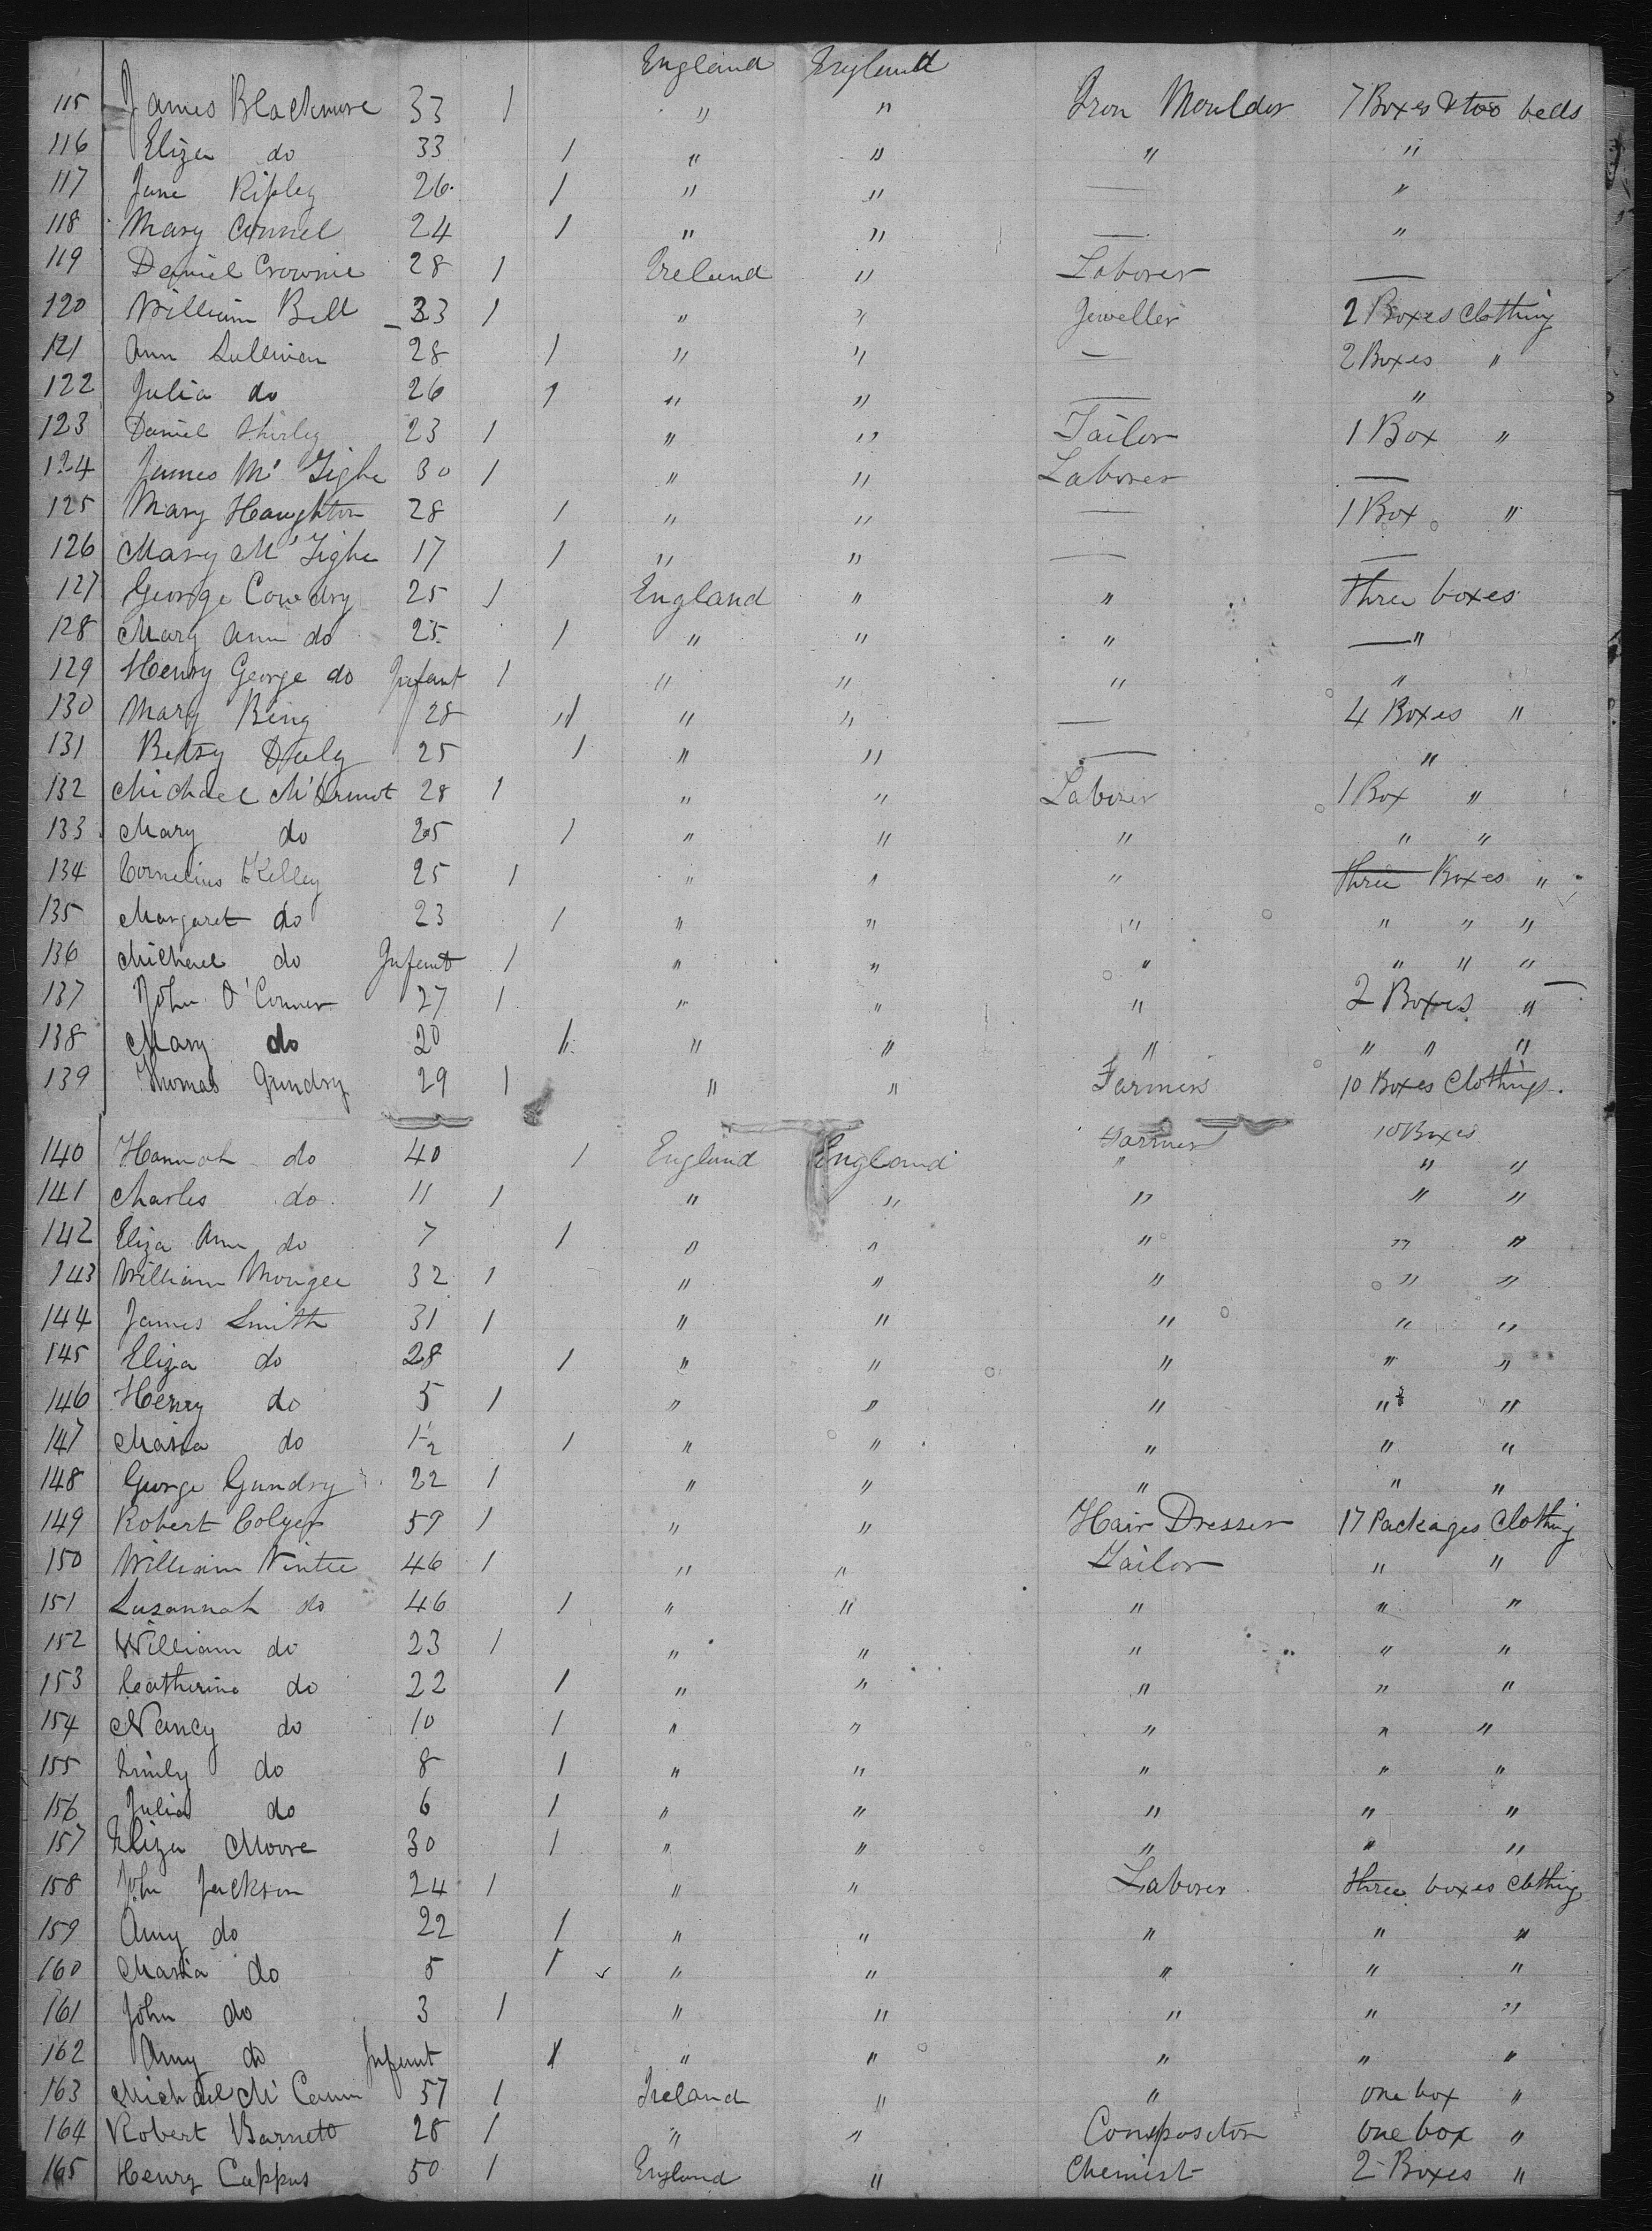 England England
115 James Blackmore 33 1 " " Iron Moulder 7 Boxes & two beds
116 Eliza do 33 1 " " " "
117 Jane Ripley 26 1 " " — "
118 Mary Connel 24 1 " " — "
119 Daniel Crownie 28 1 Ireland " Laborer —
120 William Bell 33 1 " " Jeweller 2 Boxes Clothing
121 Ann Sullivan 28 1 " " — 2 Boxes "
122 Julia do 26 1 " " — "
123 Daniel Shirley 23 1 " " Tailor 1 Box "
124 James Mc Tighe 30 1 " " Laborer —
125 Mary Haughton 28 1 " " — 1 Box "
126 Mary Mc Tighe 17 1 " " — —
127 George Cowdry 25 1 England " " three boxes
128 Mary Ann do 25 1 " " " — "
129 Henry George do Infant 1 " " " "
130 Mary Bing 28 1 " " — 4 Boxes "
131 Betsy Daly 25 1 " " — "
132 Michael 28 1 " " Laborer 1 Box "
133 Mary do 25 1 " " " " "
134 Cornelius Kelley 25 1 " " " three Boxes "
135 Margaret do 23 1 " " " " " "
136 Michael do Infant 1 " " " " " "
137 John O'Conner 27 1 " " " 2 Boxes "
138 Mary do 20 1 " " " " " "
139 Thomas Gundry 29 1 " " Farmers 10 Boxes Clothings.
Farmer 10 Boxes
140 Hannah do 40 1 England England " " "
141 Charles do 11 1 " " " " "
142 Eliza Ann do 7 1 " " " " "
143 William Mougee 32 1 " " " " "
144 James Smith 31 1 " " " " "
145 Eliza do 28 1 " " " " "
146 Henry do 5 1 " " " " "
147 Maria do 1 " " " " "
148 George Gundry 22 1 " " " " "
149 Robert Colyer 59 1 " " Hair Dresser 17 Packages Clothing
150 William Vintee 46 1 " " Tailor " "
151 Susannah do 46 1 " " " " "
152 William do 23 1 " " " " "
153 Catherine do 22 1 " " " " "
154 Nancy do 10 1 " " " " "
155 Emily do 8 1 " " " " "
156 Julia do 6 1 " " " " "
157 Eliza Moore 30 1 " " " " "
158 John Jackson 24 1 " " Laborer three boxes Clothing
159 Amy do 22 1 " " " " "
160 Maria do 5 1 " " " " "
161 John do 3 1 " " " " "
162 Amy do Infant 1 " " " " "
163 Michael Mc Cann 57 1 Ireland " " one box "
164 Robert Barnett 28 1 " " Compositor one box "
165 Henry Cappus 50 1 England " Chemist 2 Boxes "